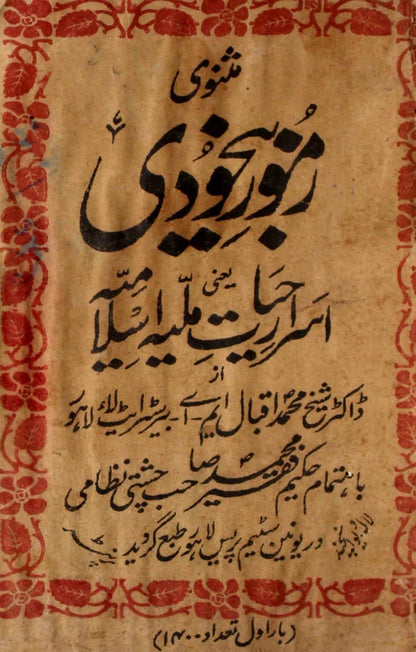 مثنوی
رموزِ بیخودی
یعنی
اسرارِ حیاتِ ملّیہ اسلامیّہ
از
ڈاکٹر شیخ محمد اقبال ایم۔اے۔ بیرسٹر ایٹ لاء لاہور
باہتمام حکیم فقیر محمد صاحب چشتی نظامی
در یونین سٹیم پریس لاہور طبع گردید
(بار اول تعداد ۱۴۰۰)